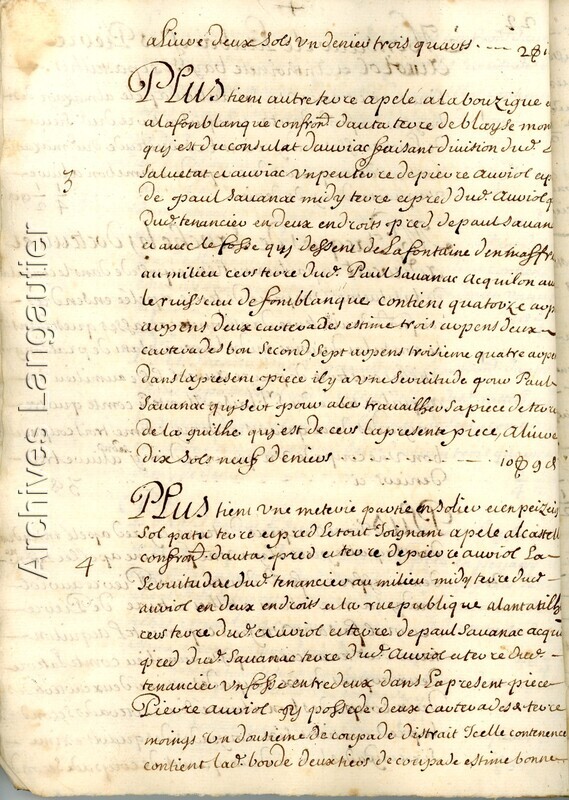 aliure deux sols un denier trois quarts. --- 2s 1
Plus tient autre terre apele a la bouzigue
a lafonblanque confrond dauta terre de blayse mon
qui est du consulat dauriac faisant division dud.
Salvetat et auriac un peu terre de pierre auriol et p
de paul Savanac midy terre et pred dud. auriol
3
dud. tenancier en deux endroits pred de paul Savan
et avec le fosse qui dessent de Lafontaine
au milieu cers terre dud. Paul Savanac acquilon
le ruisseau de fomblanque contient quatorze arp
arpens deux carterades estime trois arpens deux
carterades bon second sept arpens troisieme quatre arpe
dans la present piece il y a une servitude pour Paul
Savanac qui sert pour aler travailher sa piece de terre
de la guilhe qui est de cers la presente piece, aliure
dix sols neuf deniers --- 10s 9d
Plus tient une meterie partie en solier et en peizei
sol patu terre et pred le tout joignant apele al castell
4
confrond. dauta pred et terre de pierre auriol La
servitude dud. tenancier au milieu midy terre dud.
auriol en deux endroits et la rue publique
cers terre dud. auriol et terre de paul Savanac acqui
pred dud. Savanac terre dud. auriol et terre dud.
tenancier un fosse entre deux dans La present piece
Pierre auriol y possede deux carterades terre
moings un dousieme de coupade distrait Icelle contenence
contient lad. borde deux tiers de coupade estime bonne
Archives Langautier